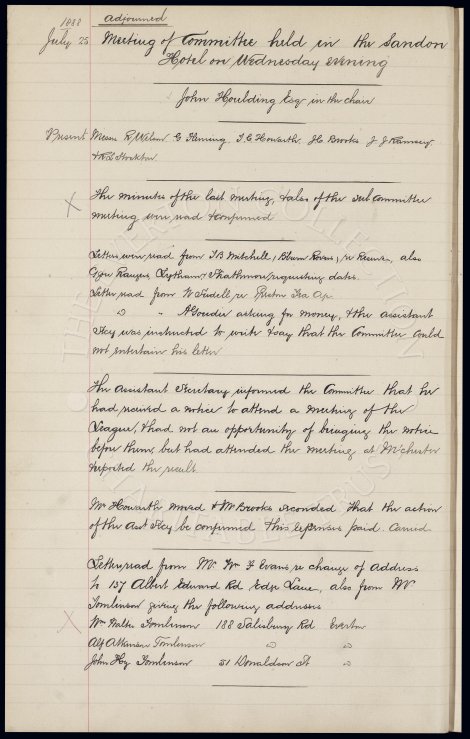 1888 adjourned
July 25 Meeting of Committee held in the Sandon
Hotel on Wednesday evening
John Houlding Esqr in the chair
Present Messrs R Wilson G Fleming T.C. Howarth. H. Brooks J. J. Ramsey
& R.S. Stockton
The minutes of the last meeting, & also of the sub Committee
meeting were read & confirmed
Letters were read from T B Mitchell, Blackburn Rovers, re also
Rangers, Lytham, Strathmore, requesting dates.
Letter read from W Sudell re Preston
" " A Goudie asking for money, & the assistant
Secy was instructed to write & say that the Committee could
not entertain his letter.
The Assistant Secretary informed the Committee that he
had received a notice to attend a meeting of the
League, & had not an opportunity of bringing the notice
before them, but had attended the meeting at M'chester
& reported the result.
Mr Howarth moved & Mr Brooks seconded that the action
of the Asst Secy be confirmed & his expenses paid. Carried
Letter read from Mr. Wm F Evans re change of address
to 137 Albert Edward Rd Edge Lane, also from W
Tomlinson giving the following addresses
Wm Walter Tomlinson 188 Salisbury Rd Everton
Alf Atkinson Tomlinson " "
John Hy Tomlinson 31 Donaldson St "
THE EVERTON COLLECTION